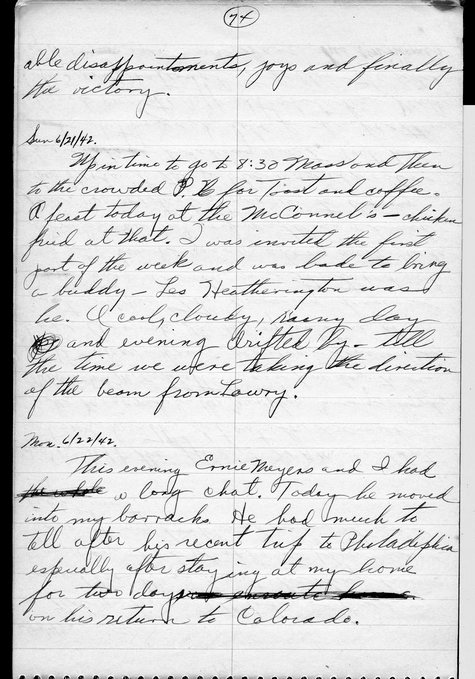 74
able disappointments, joys and finally
the victory.
Sun 6/21/42.
Up in time to go to 8:30 Mass and then
to the crowded P.X for toast and coffee.
A feast today at the McConnel's – chicken
fried at that. I was invited the first
part of the week and was bade to bring
a buddy – Les Heatherington was
he. A cool, cloudy, rainy day
and evening drifted by – till
the time we were taking the direction
of the beam from Lowry.
Mon. 6/22/42.
This evening Ernie Meyers and I had
the whole a long chat. Today he moved
into my barracks. He had much to
tell after his recent trip to Philadelphia
especially after staying at my home
for two days
on his return to Colorado.